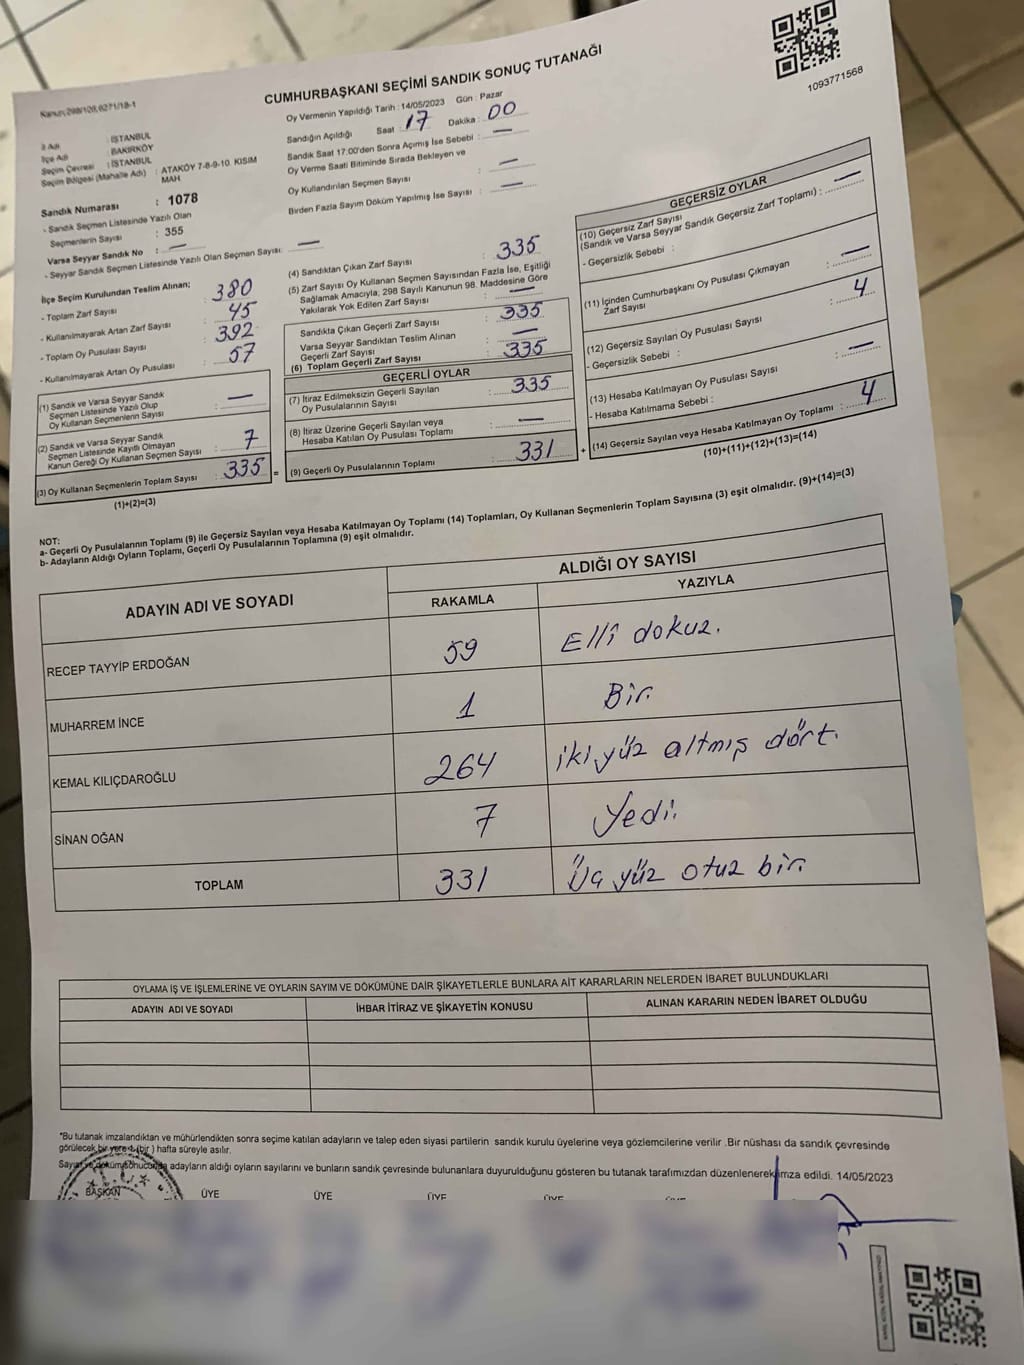 Kanun:298/109,6271/18-1
CUMHURBAŞKANI SEÇİMİ SANDIK SONUÇ TUTANAĞI
1093771568
İl Adı : İSTANBUL
İlçe Adı : BAKIRKÖY
Seçim Çevresi : İSTANBUL
Seçim Bölgesi (Mahalle Adı) : ATAKÖY 7-8-9-10. KISIM MAH.
Sandık Numarası : 1078
- Sandık Seçmen Listesinde Yazılı Olan
Seçmenlerin Sayısı : 355
Varsa Seyyar Sandık No : —
- Seyyar Sandık Seçmen Listesinde Yazılı Olan Seçmen Sayısı: —
Oy Vermenin Yapıldığı Tarih : 14/05/2023 Gün : Pazar
Sandığın Açıldığı Saat : 17 Dakika : 00
Sandık Saat 17:00'den Sonra Açımış İse Sebebi : —
Oy Verme Saati Bitiminde Sırada Bekleyen ve
Oy Kullandırılan Seçmen Sayısı : —
Birden Fazla Sayım Döküm Yapılmış İse Sayısı : —
İlçe Seçim Kurulundan Teslim Alınan;
- Toplam Zarf Sayısı : 380
- Kullanılmayarak Artan Zarf Sayısı : 45
- Toplam Oy Pusulası Sayısı : 392
- Kullanılmayarak Artan Oy Pusulası : 57
(1) Sandık ve Varsa Seyyar Sandık
Seçmen Listesinde Yazılı Olup
Oy Kullanan Seçmenlerin Sayısı : —
(2) Sandık ve Varsa Seyyar Sandık
Seçmen Listesinde Kayıtlı Olmayan
Kanun Gereği Oy Kullanan Seçmen Sayısı : 7
(3) Oy Kullanan Seçmenlerin Toplam Sayısı : 335 =
(1)+(2)=(3)
(4) Sandıktan Çıkan Zarf Sayısı : 335
(5) Zarf Sayısı Oy Kullanan Seçmen Sayısından Fazla İse, Eşitliği
Sağlamak Amacıyla; 298 Sayılı Kanunun 98. Maddesine Göre
Yakılarak Yok Edilen Zarf Sayısı : —
Sandıkta Çıkan Geçerli Zarf Sayısı : 335
Varsa Seyyar Sandıktan Teslim Alınan
Geçerli Zarf Sayısı : —
(6) Toplam Geçerli Zarf Sayısı : 335
GEÇERLİ OYLAR
(7) İtiraz Edilmeksizin Geçerli Sayılan
Oy Pusulalarının Sayısı : 335
(8) İtiraz Üzerine Geçerli Sayılan veya
Hesaba Katılan Oy Pusulası Toplamı : —
(9) Geçerli Oy Pusulalarının Toplamı : 331 +
GEÇERSİZ OYLAR
(10) Geçersiz Zarf Sayısı
(Sandık ve Varsa Seyyar Sandık Geçersiz Zarf Toplamı) : —
- Geçersizlik Sebebi :
(11) İçinden Cumhurbaşkanı Oy Pusulası Çıkmayan
Zarf Sayısı : —
(12) Geçersiz Sayılan Oy Pusulası Sayısı : 4
- Geçersizlik Sebebi :
(13) Hesaba Katılmayan Oy Pusulası Sayısı : —
- Hesaba Katılmama Sebebi :
(14) Geçersiz Sayılan veya Hesaba Katılmayan Oy Toplamı : 4
(10)+(11)+(12)+(13)=(14)
NOT:
a- Geçerli Oy Pusulalarının Toplamı (9) ile Geçersiz Sayılan veya Hesaba Katılmayan Oy Toplamı (14) Toplamları, Oy Kullanan Seçmenlerin Toplam Sayısına (3) eşit olmalıdır. (9)+(14)=(3)
b- Adayların Aldığı Oyların Toplamı, Geçerli Oy Pusulalarının Toplamına (9) eşit olmalıdır.
ADAYIN ADI VE SOYADI
ALDIĞI OY SAYISI
RAKAMLA YAZIYLA
RECEP TAYYİP ERDOĞAN 59 Elli dokuz.
MUHARREM İNCE 1 Bir.
KEMAL KILIÇDAROĞLU 264 iki yüz altmış dört.
SİNAN OĞAN 7 Yedi.
TOPLAM 331 Üç yüz otuz bir.
OYLAMA İŞ VE İŞLEMLERİNE VE OYLARIN SAYIM VE DÖKÜMÜNE DAİR ŞİKAYETLERLE BUNLARA AİT KARARLARIN NELERDEN İBARET BULUNDUKLARI
ADAYIN ADI VE SOYADI İHBAR İTİRAZ VE ŞİKAYETİN KONUSU ALINAN KARARIN NEDEN İBARET OLDUĞU
"Bu tutanak imzalandıktan ve mühürlendikten sonra seçime katılan adayların ve talep eden siyasi partilerin sandık kurulu üyelerine veya gözlemcilerine verilir .Bir nüshası da sandık çevresinde
görülecek bir yere 1 (bir) hafta süreyle asılır.
Sayım ve döküm sonucunda adayların aldığı oyların sayılarını ve bunların sandık çevresinde bulunanlara duyurulduğunu gösteren bu tutanak tarafımızdan düzenlenerek imza edildi. 14/05/2023
BAŞKAN ÜYE ÜYE ÜYE ÜYE ÜYE